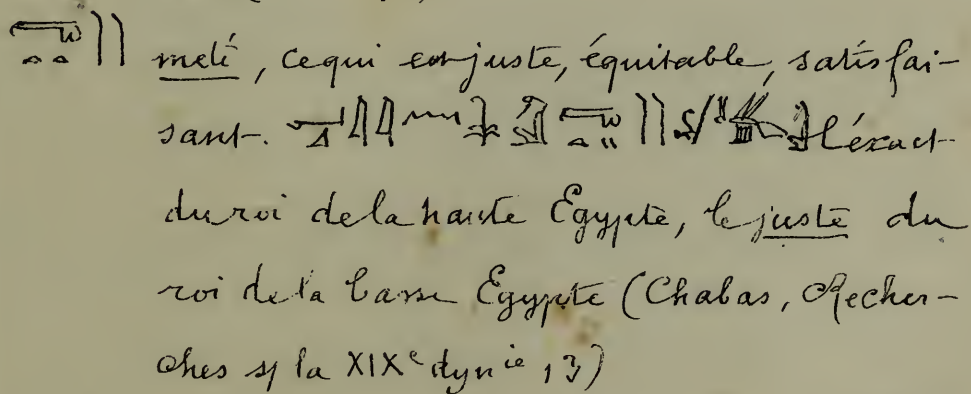 meti, ce qui est juste, équitable, satisfai-
sant. l'éxact
du roi de la haute Égypte, le juste du
roi de la basse Égypte (Chabas, Recher-
ches s/ la XIXe dynie 13)